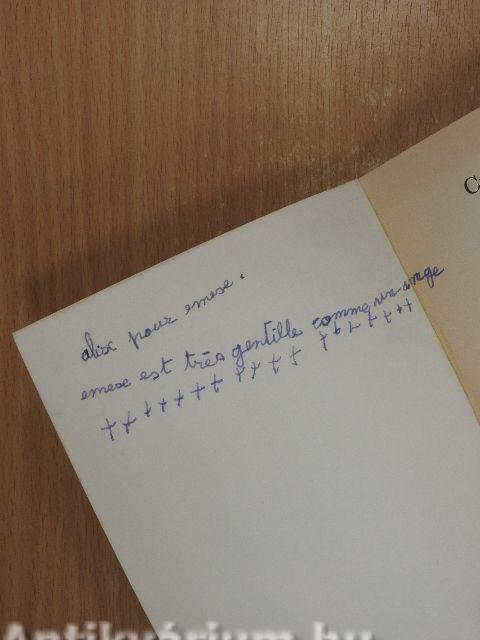 alix pour emese.
emese est très gentille comme un ange
++++++++++++++++++++
Ca
Antikvárium.hu